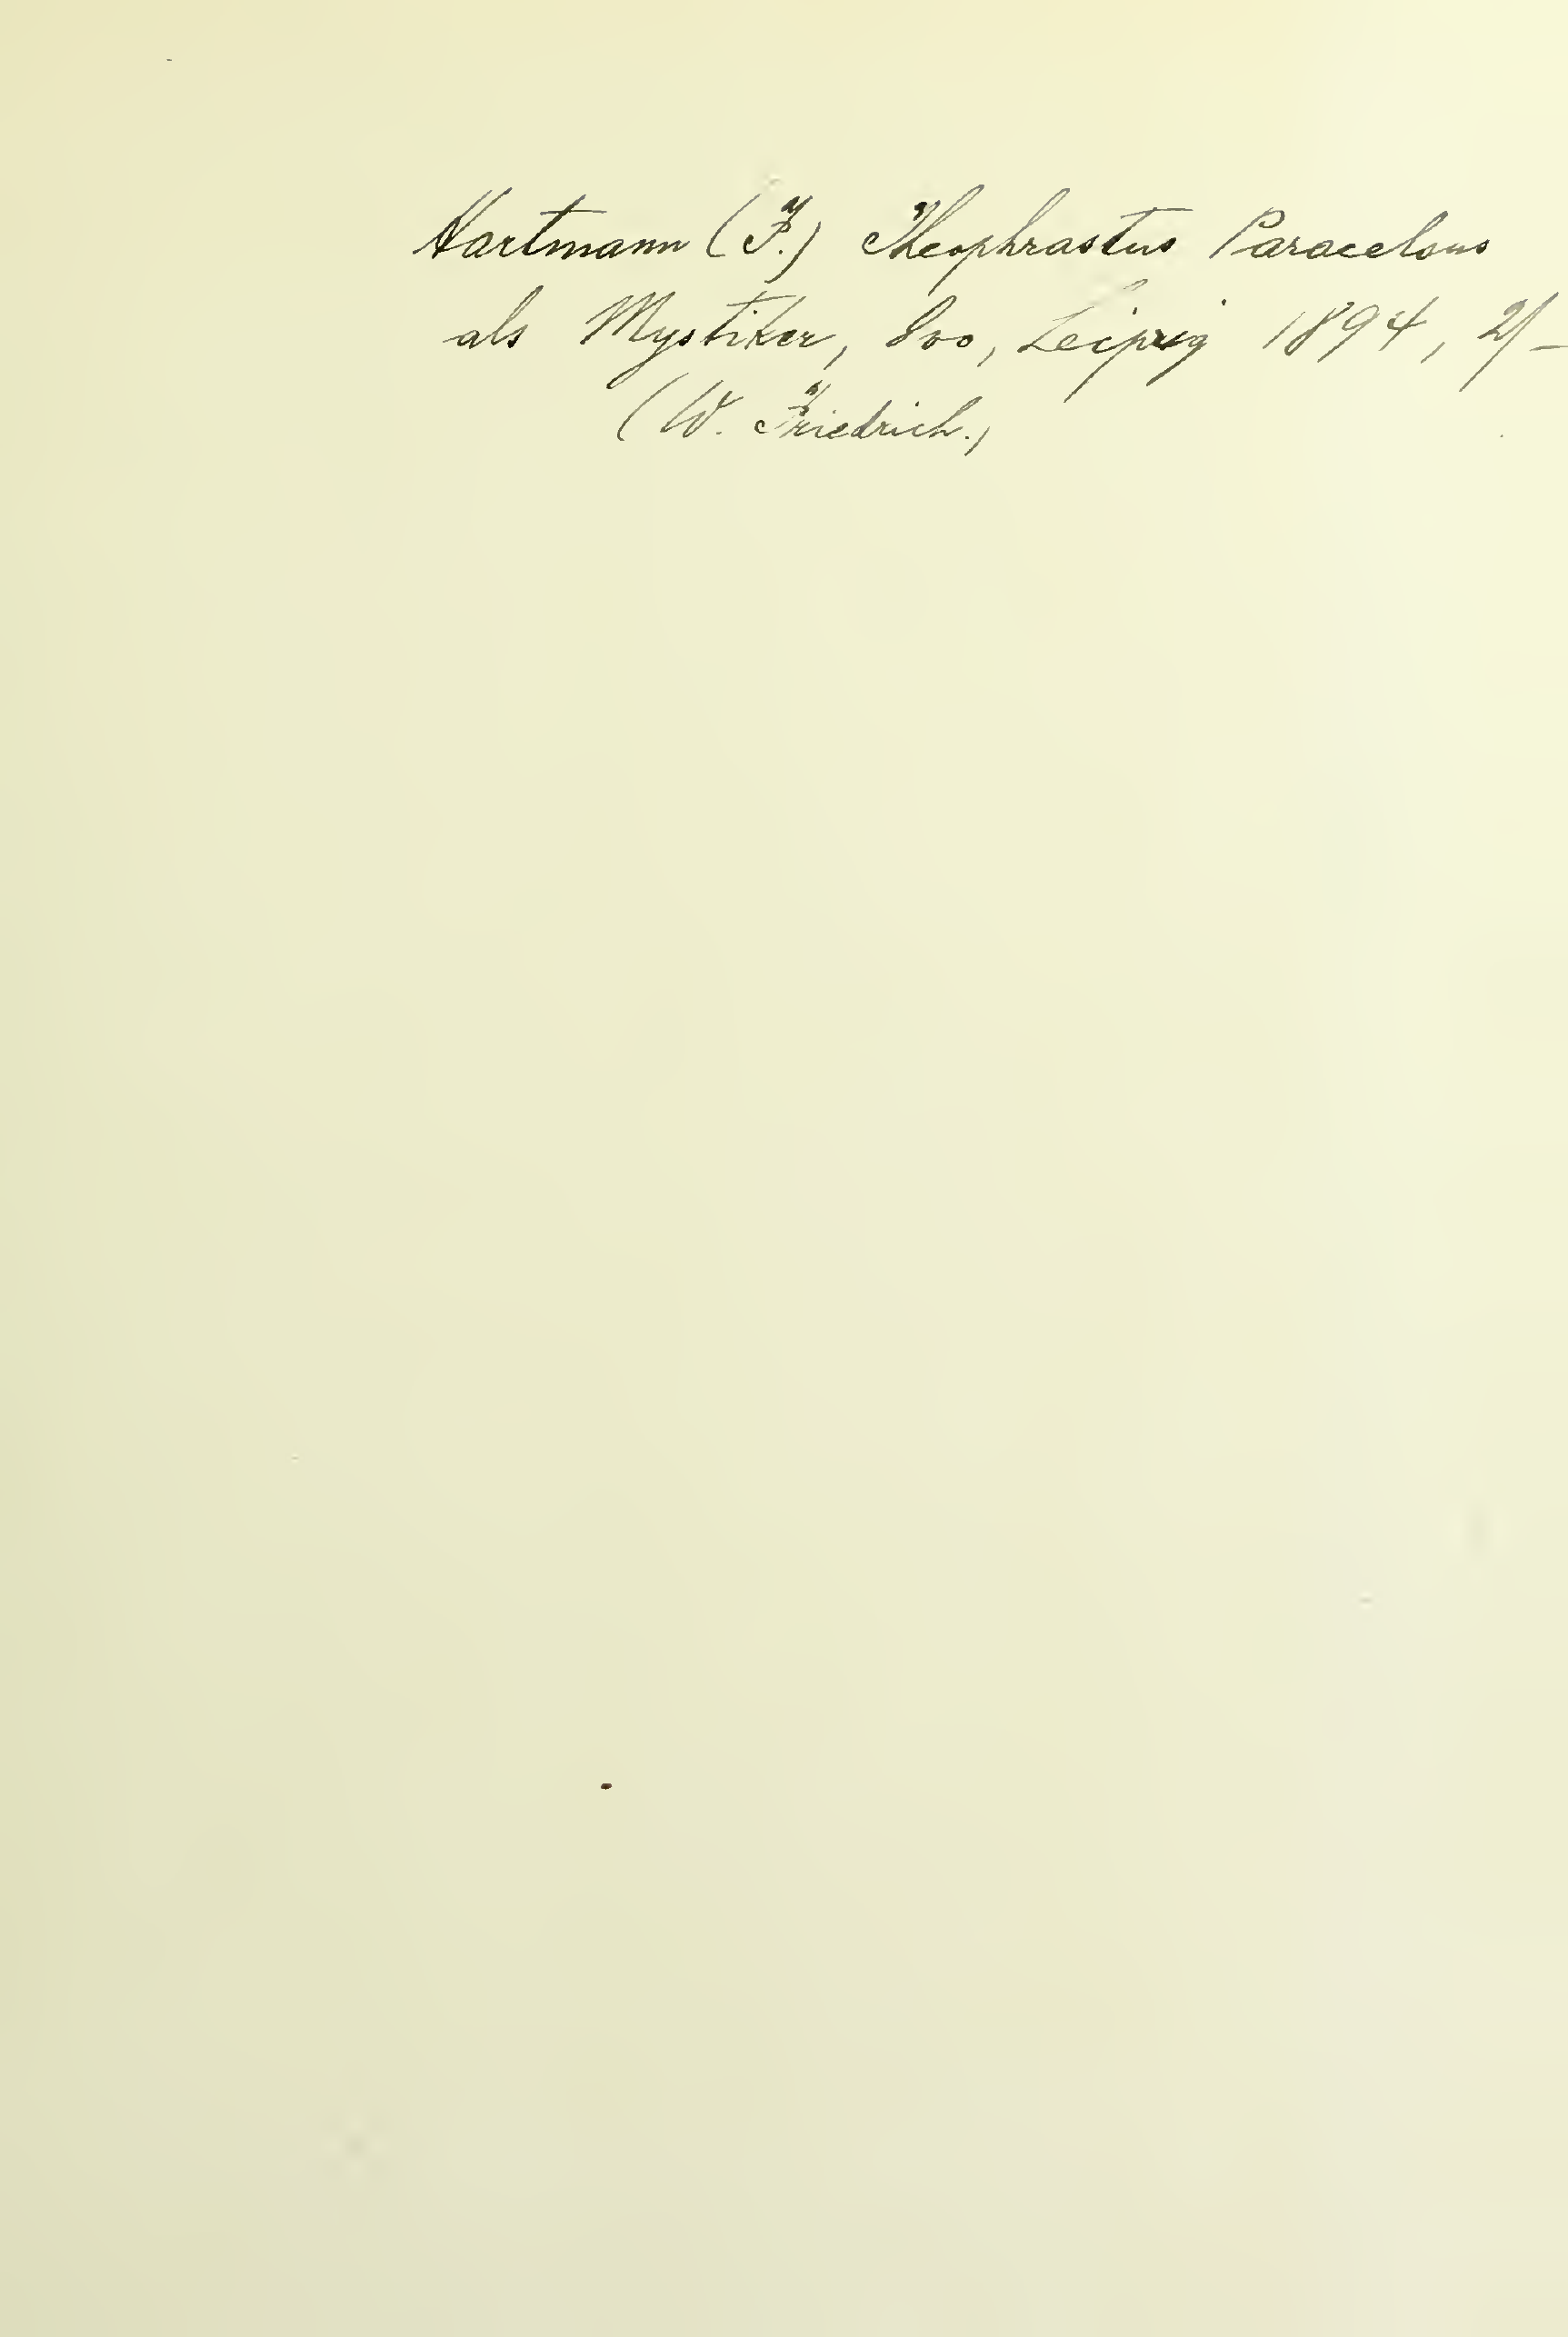 Hartmann (F.) Theophrastus Paracelsus
als Mystiker, 8vo, Leipzig 1894, 2/-
(W. Friedrich.)